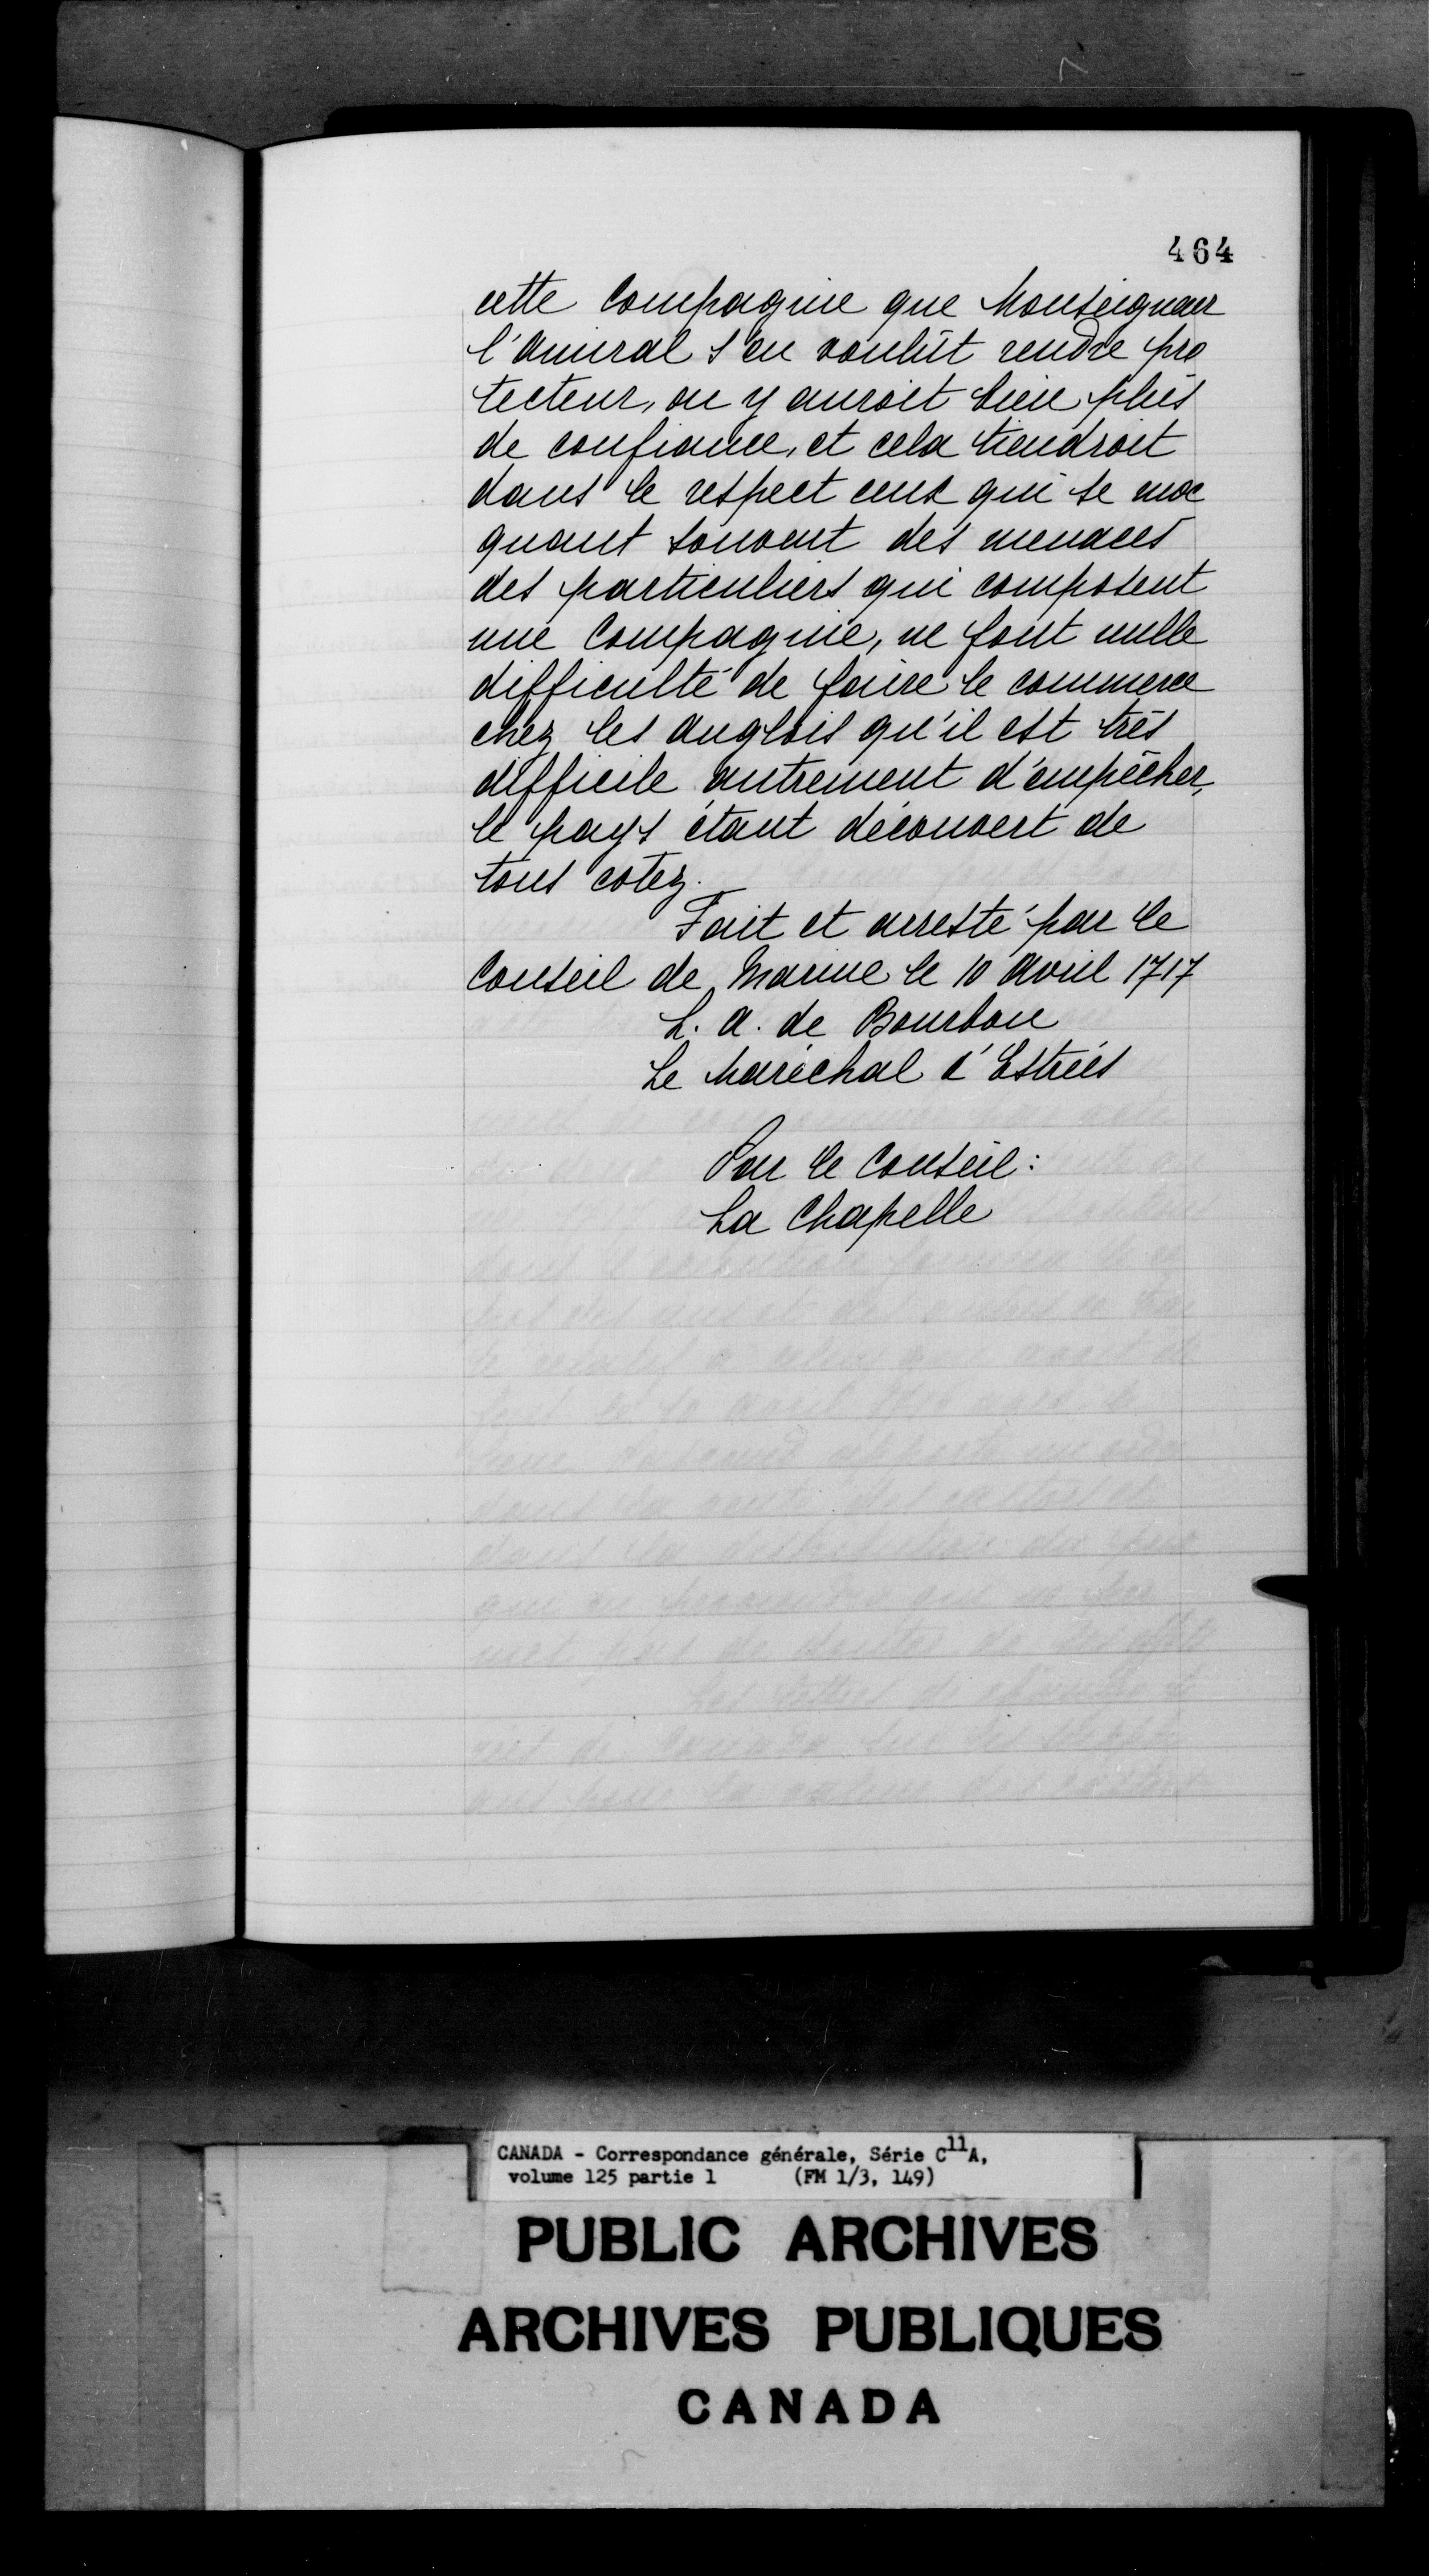 464
cette Compagnie que Monseigneur
l'amiral s'en voulût rendre pro
tecteur, on y auroit bien plus
de confiance, et cela tiendroit
dans le respect ceux qui se moc
quant souvent des menaces
des particuliers qui composent
une Compagnie, ne font nulle
difficulté de faire le commerce
chez les anglois qu'il est très
difficile autrement d'empêcher,
le pays étant découvert de
tous cotez.
Fait et arresté par le
Conseil de Marine le 10 avril 1717
L. A. de Bourbon
Le Maréchal d'Estrées
Par le Conseil:
La Chapelle
CANADA - Correspondance générale, Série C11A,
volume 125 partie 1 (FM 1/3, 149)
PUBLIC ARCHIVES
ARCHIVES PUBLIQUES
CANADA